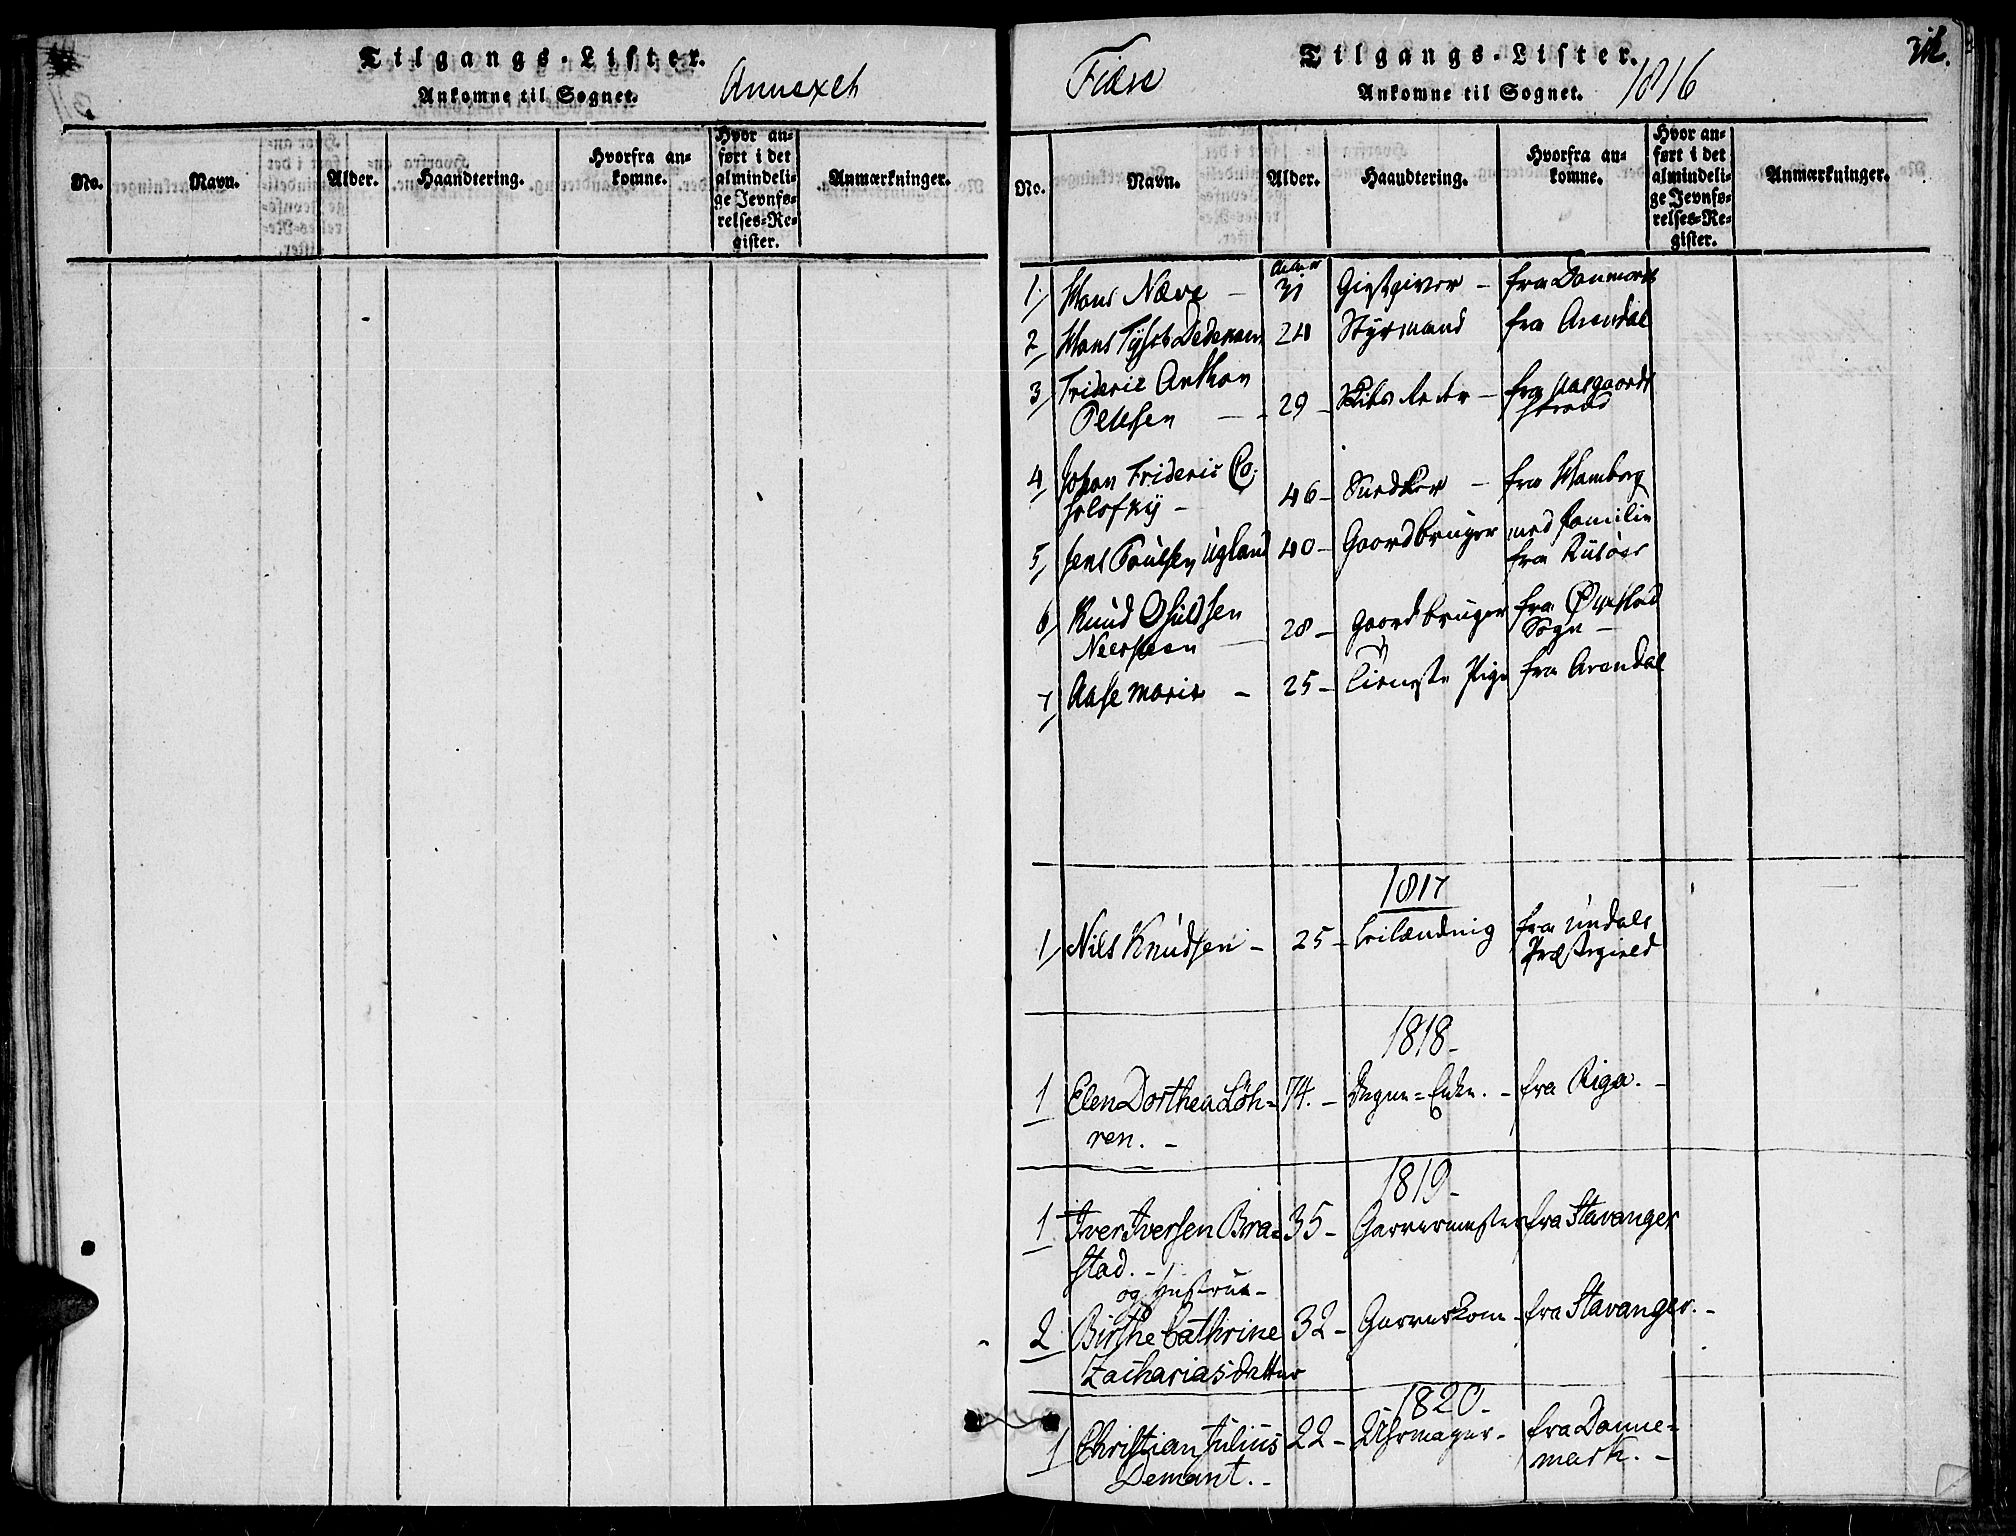 Tilgangs-Lister.
Ankomne til Sognet. Annexet
No. Navn. Alder. Haandtering. Hvorfra ankomne. Hvor anført i det almindelige Jevnførelses-Register. Anmærkninger.
Fiære Tilgangs-Lister.
Ankomne til Sognet. 1816
No. Navn. Alder. Haandtering. Hvorfra ankomne. Hvor anført i det almindelige Jevnførelses-Register. Anmærkninger.
1/ Hans Næve - 31 Giestgiver - fra Danmark
2/ Hans 28 Styrmand fra Arendal
3/ Frideric Anthon
Petersen - 29 - fra Aasgaards
strand
4/ Johan Frideric
46 - Snedker - fra Hamborg
5/ Jens Poulsen Ugland 40 - Gaardbruger med familie
fra
6/ Knud Osuldsen
28 - Gaardbruger fra Øyestad
Sogn -
7/ Aase Marie - 25 - Tieneste Pige fra Arendal
1817
1/ Nils Knudsen - 25 - fra Undals
Præstegield
1818 -
1 Elen Dorthea Löh= 74. - Degne=Enke. - fra Riga. -
ren. -
1819 -
1 Iver Iversen Bra= 35 - Garvermester fra Stavanger
stad. -
og Hustrue -
2 Birthe Cathrine 32 - Garverkone - fra Stavanger. -
Zachariasdatter
1820 -
1 Christian Julius 22 - Uhrmager - fra Danne=
Demant. - mark. -